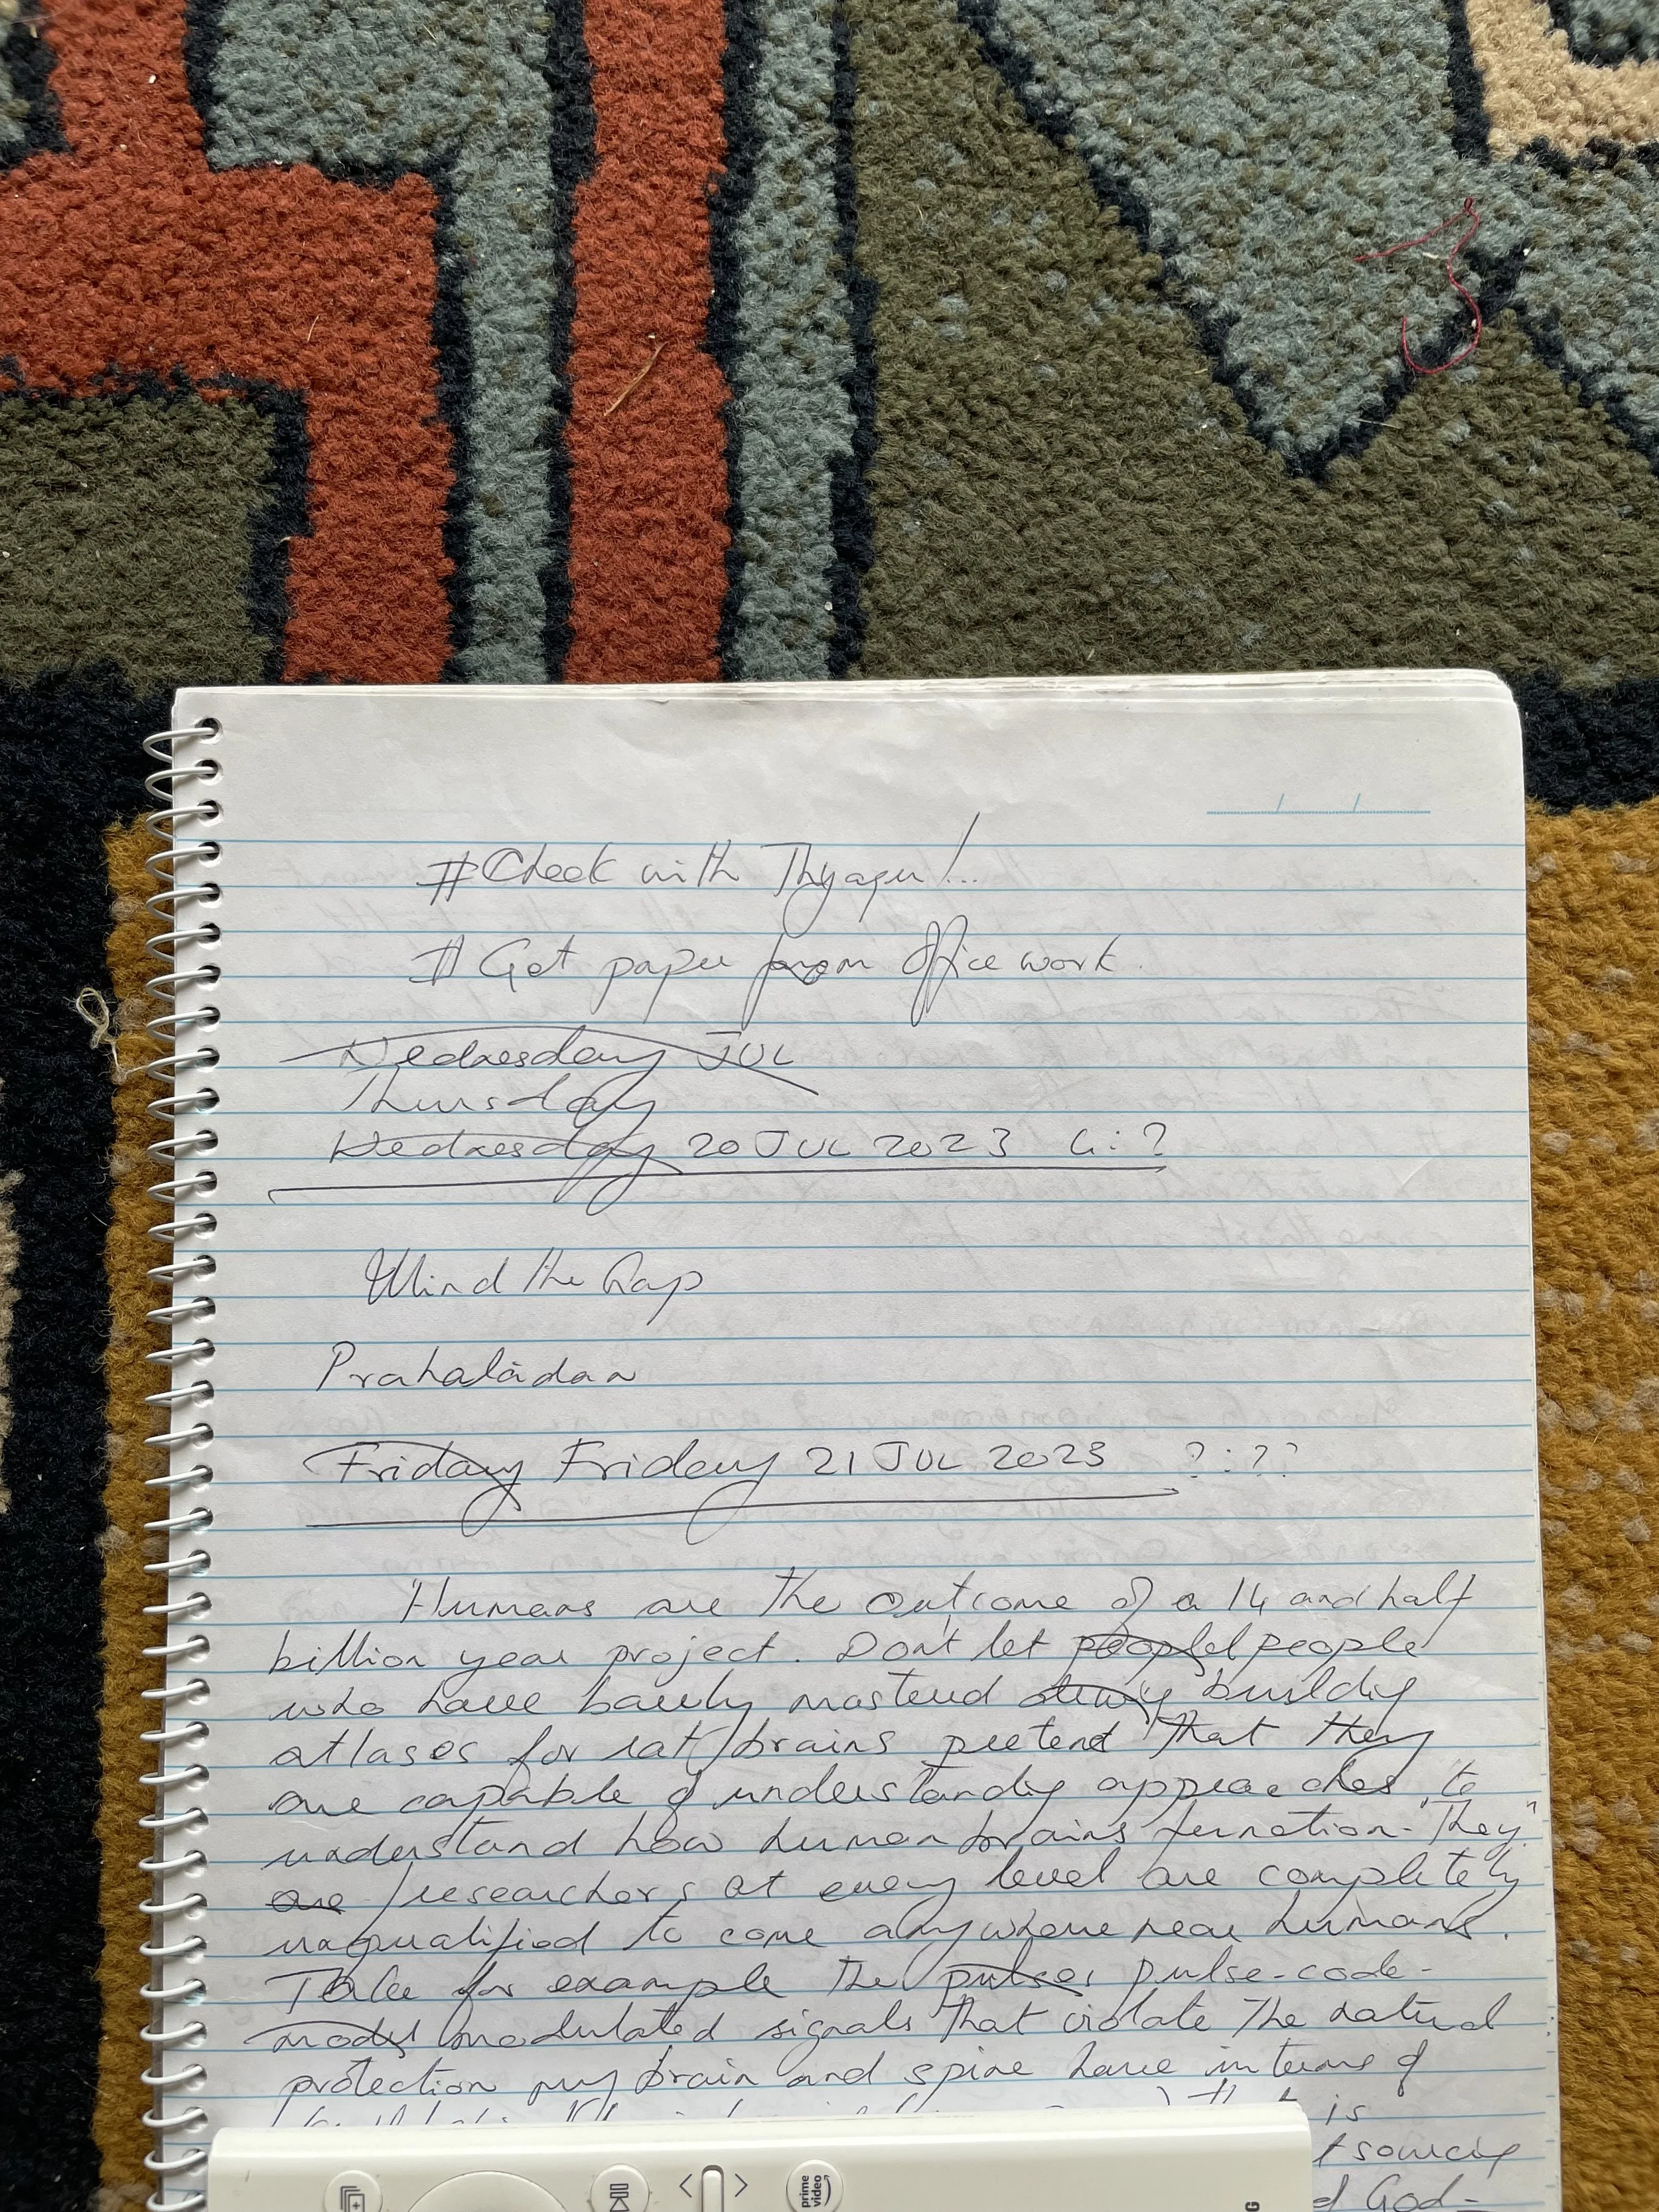 #Check with Thyagu!...
# Get paper from Office work.
Wednesday JUL
Thursday
Wednesday 20 JUL 2023 4:?
Mind the Gap
Prahaladan
Friday Friday 21 JUL 2023 ?:??
Humans are the outcome of a 14 and half
billion year project. Don't let people people
who have barely mastered building
atlases for rat brains pretend that they
are capable of understanding approaches to
understand how human brains function. "They"
are researchers at every level are completely
unqualified to come anywhere near humans.
Take for example the pulses pulse-code-
model modulated signals that violate the natural
protection my brain and spine have in terms of
is
God-
prime video